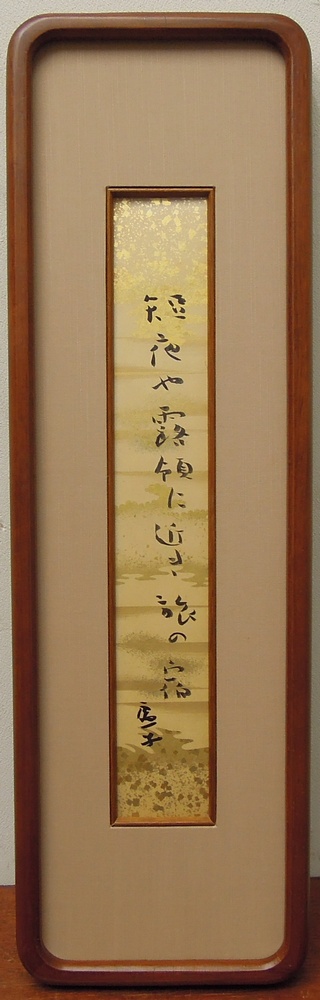 短夜や露領に近き旅の宿
虚子